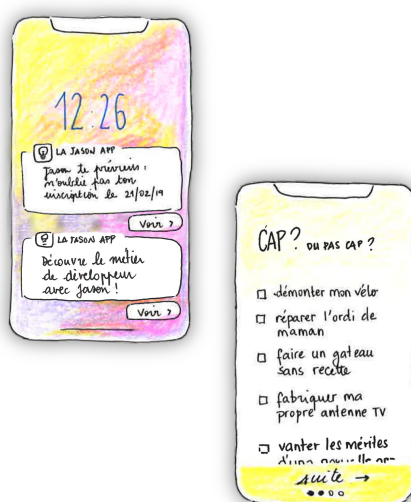 12:26
LA JASON APP
Jason te prévient :
n'oublie pas ton
inscription le 21/02/19
Voir >
LA JASON APP
Découvre le métier
de développeur
avec Jason !
Voir >
CAP ? OU PAS CAP ?
démonter mon vélo
réparer l'ordi de
maman
faire un gateau
sans recette
fabriquer ma
propre antenne TV
vanter les mérites
d'une nouvelle
suite →